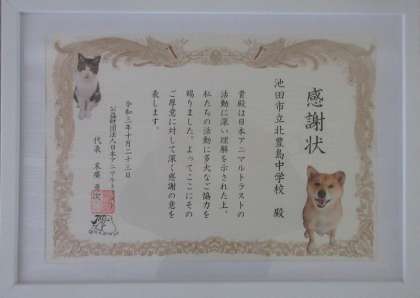 感謝状
池田市立北豊島中学校 殿
貴殿は日本アニマルトラストの
活動に深い理解を示された上、
私たちの活動に多大なご協力を
賜りました。よってここにその
ご厚意に対して深く感謝の意を
表します。
令和三年十月二十三日
公益財団法人日本アニマルト
代表